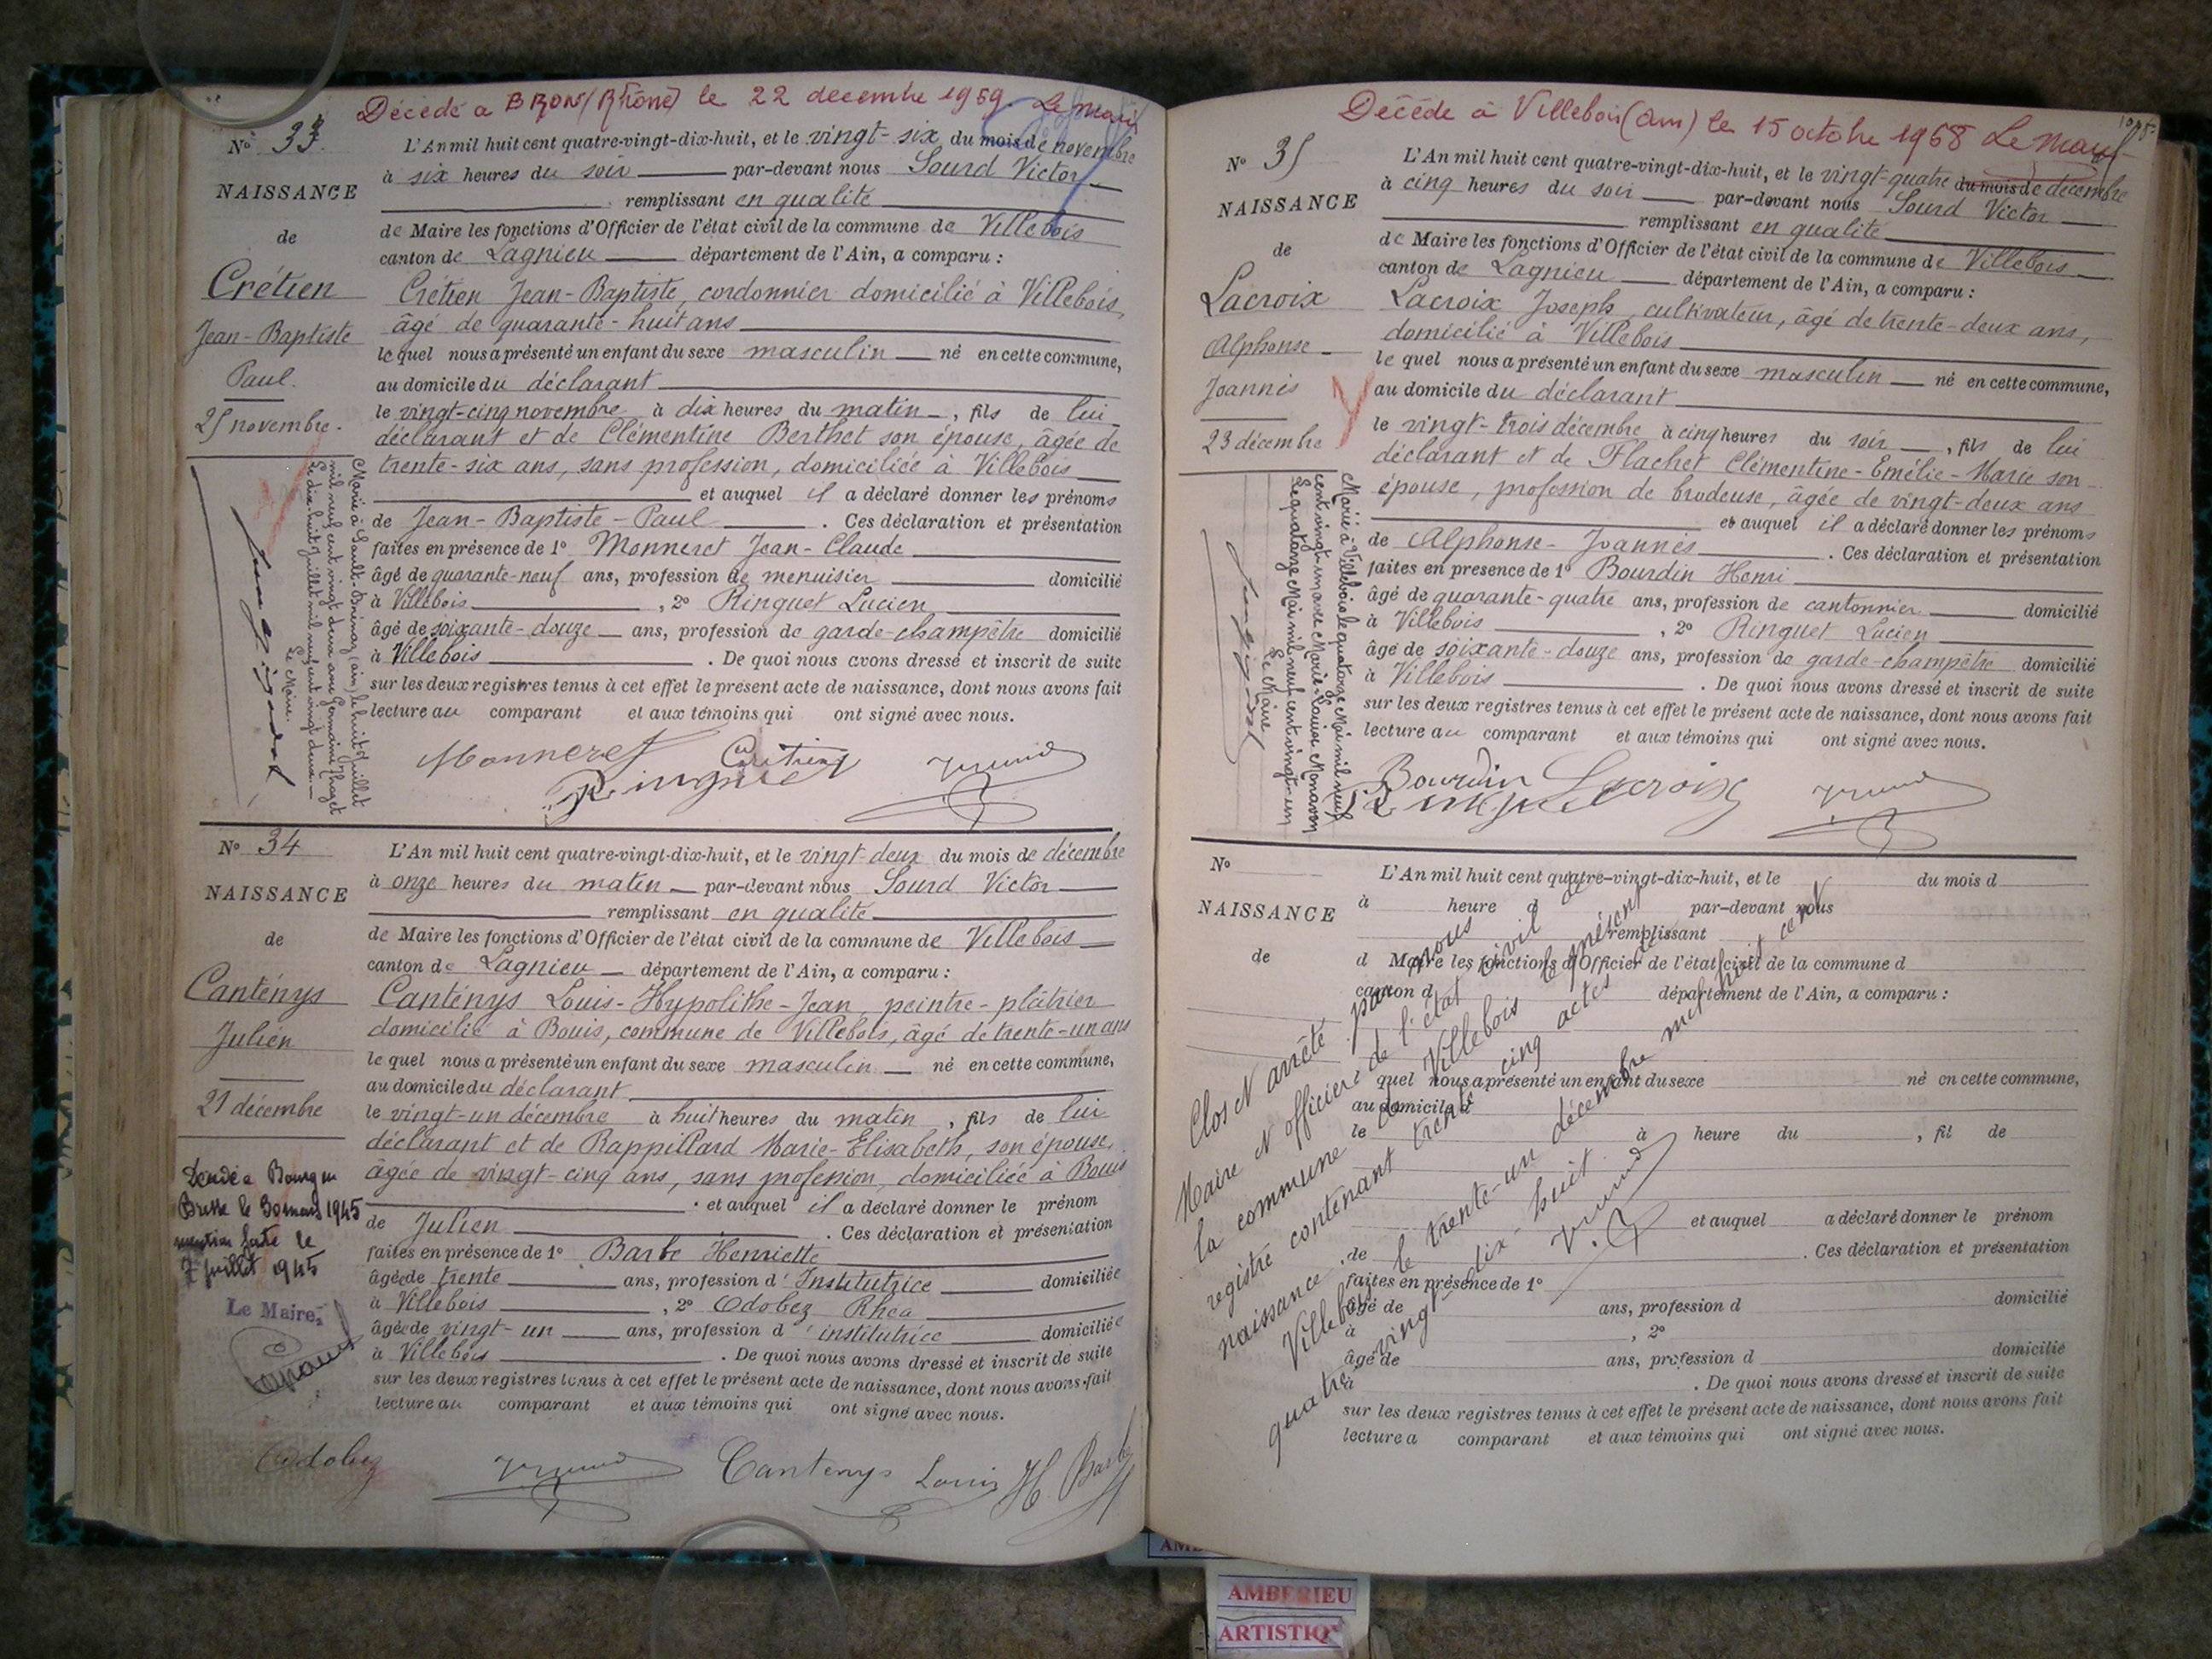 Décédé à BRON (Rhône) le 22 decembre 1959. Le Maire
N° 33.
NAISSANCE
de
Crétien
Jean-Baptiste
Paul.
25 novembre.
L'An mil huit cent quatre-vingt-dix-huit, et le vingt-six du mois de novembre
à six heures du soir par-devant nous Sourd Victor
remplissant en qualité
de Maire les fonctions d'Officier de l'état civil de la commune de Villebois
canton de Lagnieu département de l'Ain, a comparu :
Crétien Jean-Baptiste, cordonnier domicilié à Villebois,
âgé de quarante-huit ans
lequel nous a présenté un enfant du sexe masculin né en cette commune,
au domicile du déclarant
le vingt-cinq novembre à dix heures du matin, fils de lui
déclarant et de Clémentine Berthet son épouse, âgée de
trente-six ans, sans profession, domiciliée à Villebois
et auquel il a déclaré donner les prénoms
de Jean-Baptiste-Paul. Ces déclaration et présentation
faites en présence de 1° Monneret Jean-Claude
âgé de quarante-neuf ans, profession de menuisier domicilié
à Villebois, 2° Ringuet Lucien
âgé de soixante-douze ans, profession de garde-champêtre domicilié
à Villebois. De quoi nous avons dressé et inscrit de suite
sur les deux registres tenus à cet effet le présent acte de naissance, dont nous avons fait
lecture au comparant et aux témoins qui ont signé avec nous.
Marié à Sault-Brénaz (ain) le huit juillet
mil neuf cent vingt deux avec Germaine
Le dix huit juillet mil neuf cent vingt deux
Le Maire.
Monneret Crétien
Ringuet
N° 34
NAISSANCE
de
Canténys
Julien
21 décembre
L'An mil huit cent quatre-vingt-dix-huit, et le vingt-deux du mois de décembre
à onze heures du matin par-devant nous Sourd Victor
remplissant en qualité
de Maire les fonctions d'Officier de l'état civil de la commune de Villebois
canton de Lagnieu département de l'Ain, a comparu :
Canténys Louis-Hypolithe-Jean, peintre-plâtrier
domicilié à Bouis, commune de Villebois, âgé de trente-un ans
lequel nous a présenté un enfant du sexe masculin né en cette commune,
au domicile du déclarant
le vingt-un décembre à huit heures du matin, fils de lui
déclarant et de Rappillard Marie-Elisabeth, son épouse,
âgée de vingt-cinq ans, sans profession, domiciliée à Bouis
et auquel il a déclaré donner le prénom
de Julien. Ces déclaration et présentation
faites en présence de 1° Barbe Henriette
âgée de trente ans, profession d'Institutrice domiciliée
à Villebois, 2° Odobez Rhea
âgée de vingt-un ans, profession d'institutrice domiciliée
à Villebois. De quoi nous avons dressé et inscrit de suite
sur les deux registres tenus à cet effet le présent acte de naissance, dont nous avons fait
lecture au comparant et aux témoins qui ont signé avec nous.
Décédé à Bourg en
Bresse le 30 mars 1945
mention faite le
7 juillet 1945
Le Maire,
Odobez Cantenys Louis H. Barbe
Décédé à Villebois (Ain) le 15 octobre 1968 Le Maire
N° 35
NAISSANCE
de
Lacroix
Alphonse
Joannès
23 décembre
L'An mil huit cent quatre-vingt-dix-huit, et le vingt-quatre du mois de décembre
à cinq heures du soir par-devant nous Sourd Victor
remplissant en qualité
de Maire les fonctions d'Officier de l'état civil de la commune de Villebois
canton de Lagnieu département de l'Ain, a comparu :
Lacroix Joseph, cultivateur, âgé de trente-deux ans,
domicilié à Villebois
lequel nous a présenté un enfant du sexe masculin né en cette commune,
au domicile du déclarant
le vingt-trois décembre à cinq heures du soir, fils de lui
déclarant et de Flachet Clémentine-Emélie-Marie son
épouse, profession de brodeuse, âgée de vingt-deux ans
et auquel il a déclaré donner les prénoms
de Alphonse-Joannès. Ces déclaration et présentation
faites en présence de 1° Bourdin Henri
âgé de quarante-quatre ans, profession de cantonnier domicilié
à Villebois, 2° Ringuet Lucien
âgé de soixante-douze ans, profession de garde-champêtre domicilié
à Villebois. De quoi nous avons dressé et inscrit de suite
sur les deux registres tenus à cet effet le présent acte de naissance, dont nous avons fait
lecture au comparant et aux témoins qui ont signé avec nous.
Marié à Villebois le quatorze Mai mil neuf
cent vingt-un avec Marie-Louise Monavon
Le quatorze Mai mil neuf cent vingt-un
Le Maire
Bourdin Lacroix
Ringuet
N°
NAISSANCE
de
L'An mil huit cent quatre-vingt-dix-huit, et le du mois d
à heure d par-devant nous
remplissant
d Maire les fonctions d'Officier de l'état civil de la commune d
canton d département de l'Ain, a comparu :
quel nous a présenté un enfant du sexe né en cette commune,
au domicile d
le à heure du , fil de
et auquel a déclaré donner le prénom
de . Ces déclaration et présentation
faites en présence de 1°
âgé de ans, profession d domicilié
à , 2°
âgé de ans, profession d domicilié
à . De quoi nous avons dressé et inscrit de suite
sur les deux registres tenus à cet effet le présent acte de naissance, dont nous avons fait
lecture a comparant et aux témoins qui ont signé avec nous.
Clos et arrêté par nous
Maire et officier de l'état civil de
la commune de Villebois le présent
registre contenant trente cinq actes de
naissance.
Villebois le trente-un décembre mil huit cent
quatre vingt-dix-huit.
AMBERIEU
ARTISTIQ